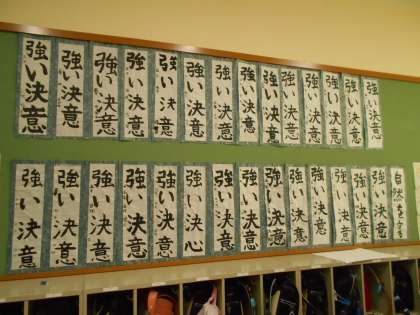 強い決意
強い決意
強い決意
強い決意
強い決意
強い決意
強い決意
強い決意
強い決意
強い決意
強い決意
強い決意
強い決意
強い決意
自然を守る
強い決意
強い決意
強い決意
強い決意
強い決意
強い決意
強い決意
強い決意
強い決心
強い決意
強い決意
強い決意
強い決意
強い決意